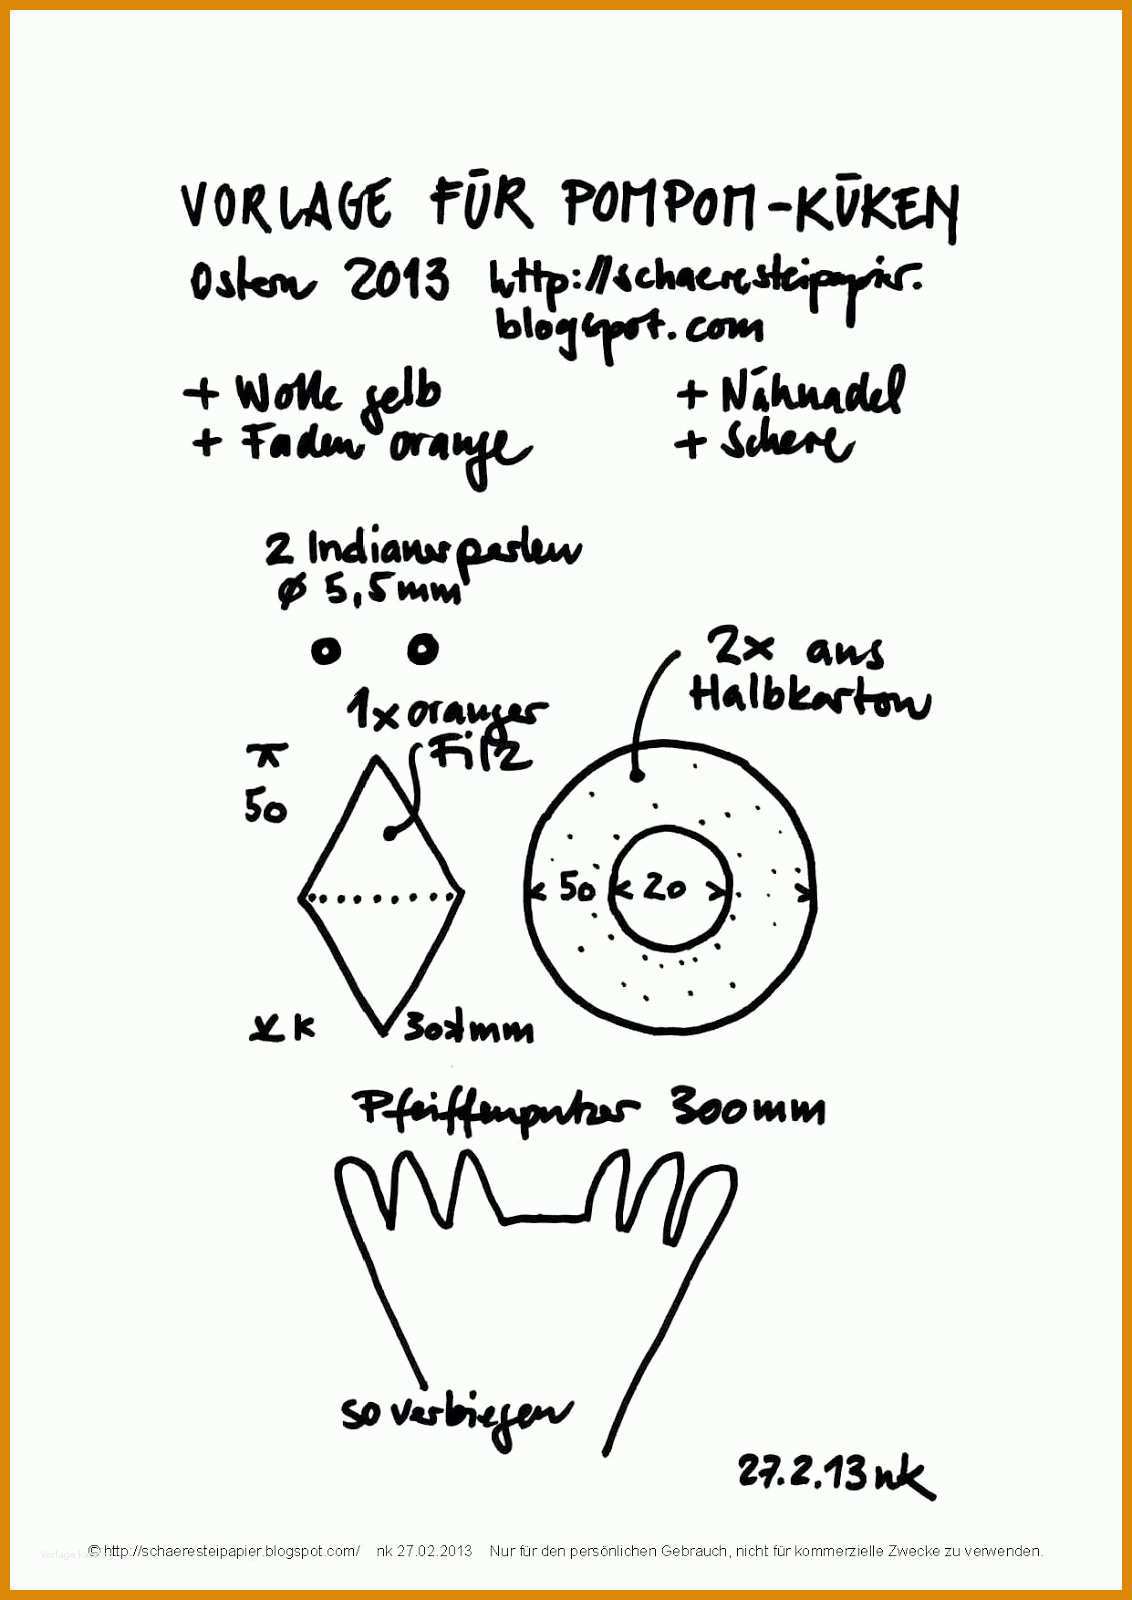 VORLAGE FÜR POMPOM-KÜKEN
Ostern 2013 http://schaeresteipapier.
blogspot.com
+ Wolle gelb + Nähnadel
+ Faden orange + Schere
2 Indianerperlen
ø 5,5mm
2x aus
Halbkarton
1x oranger
Filz
50
50 20
30 mm
Pfeiffenputzer 300mm
so verbiegen
27.2.13 nk
© http://schaeresteipapier.blogspot.com/ nk 27.02.2013 Nur für den persönlichen Gebrauch, nicht für kommerzielle Zwecke zu verwenden.